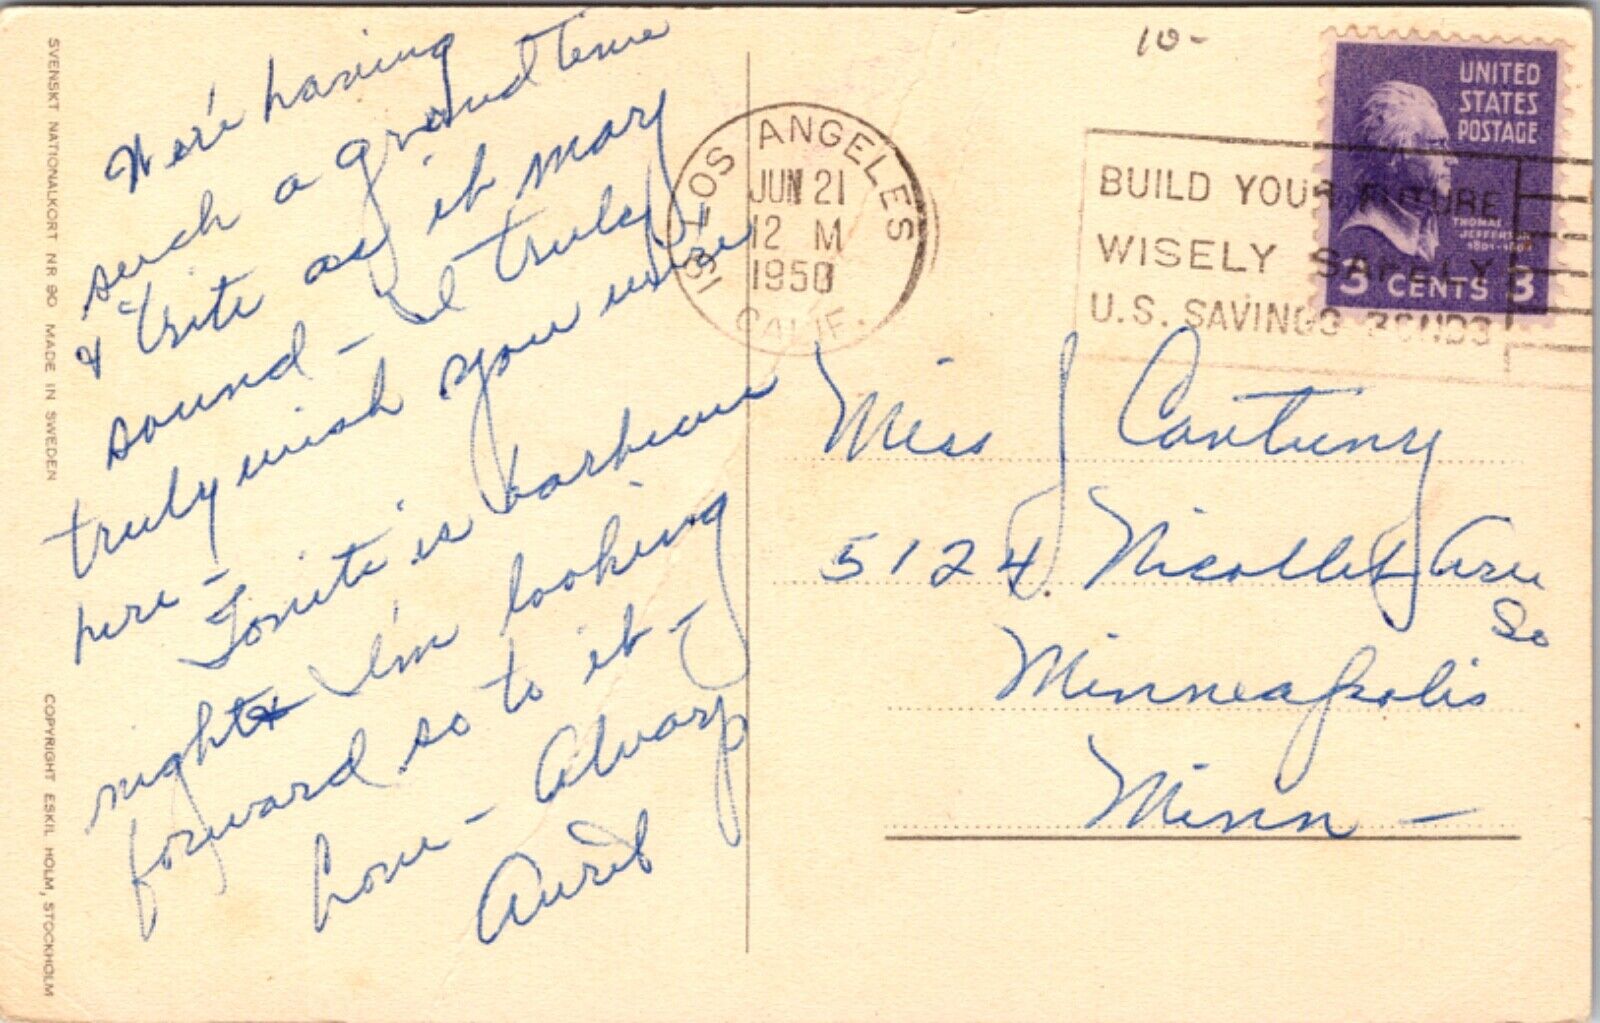 We're having
such a grand time
& trite as it may
sound - I truly
truly wish you were
here -
Tonite is barbecue
night & I'm looking
forward so to it -
Love - Always
SVENSKT NATIONALKORT NR 90 MADE IN SWEDEN
COPYRIGHT ESKIL HOLM, STOCKHOLM
10-
LOS ANGELES
JUN 21
12 M
1950
CALIF.
BUILD YOUR FUTURE
WISELY SAFELY
U.S. SAVINGS BONDS
UNITED
STATES
POSTAGE
THOMAS
JEFFERSON
3 CENTS 3
Miss J
5124 Nicollet Ave
So
Minneapolis
Minn -